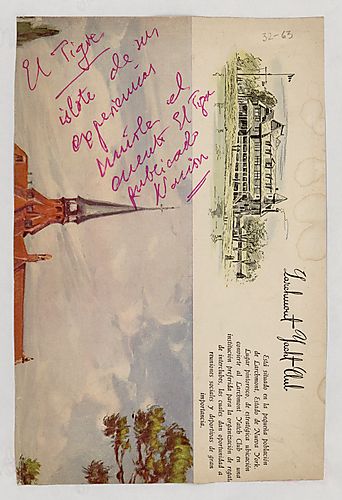 32-63
El Tigre
islote de sus
experiencias
el
cuento El Tigre
publicado
Nación
Larchmont Yacht Club
Está situado en la pequeña población
de Larchmont, Estado de Nueva York.
Lugar pintoresco, de estratégica ubicación
convierte al Larchmont Yatch Club en una
institución preferida para la organización de regatas
de interclubs, las cuales dan oportunidad a
reuniones sociales y deportivas de gran
importancia.